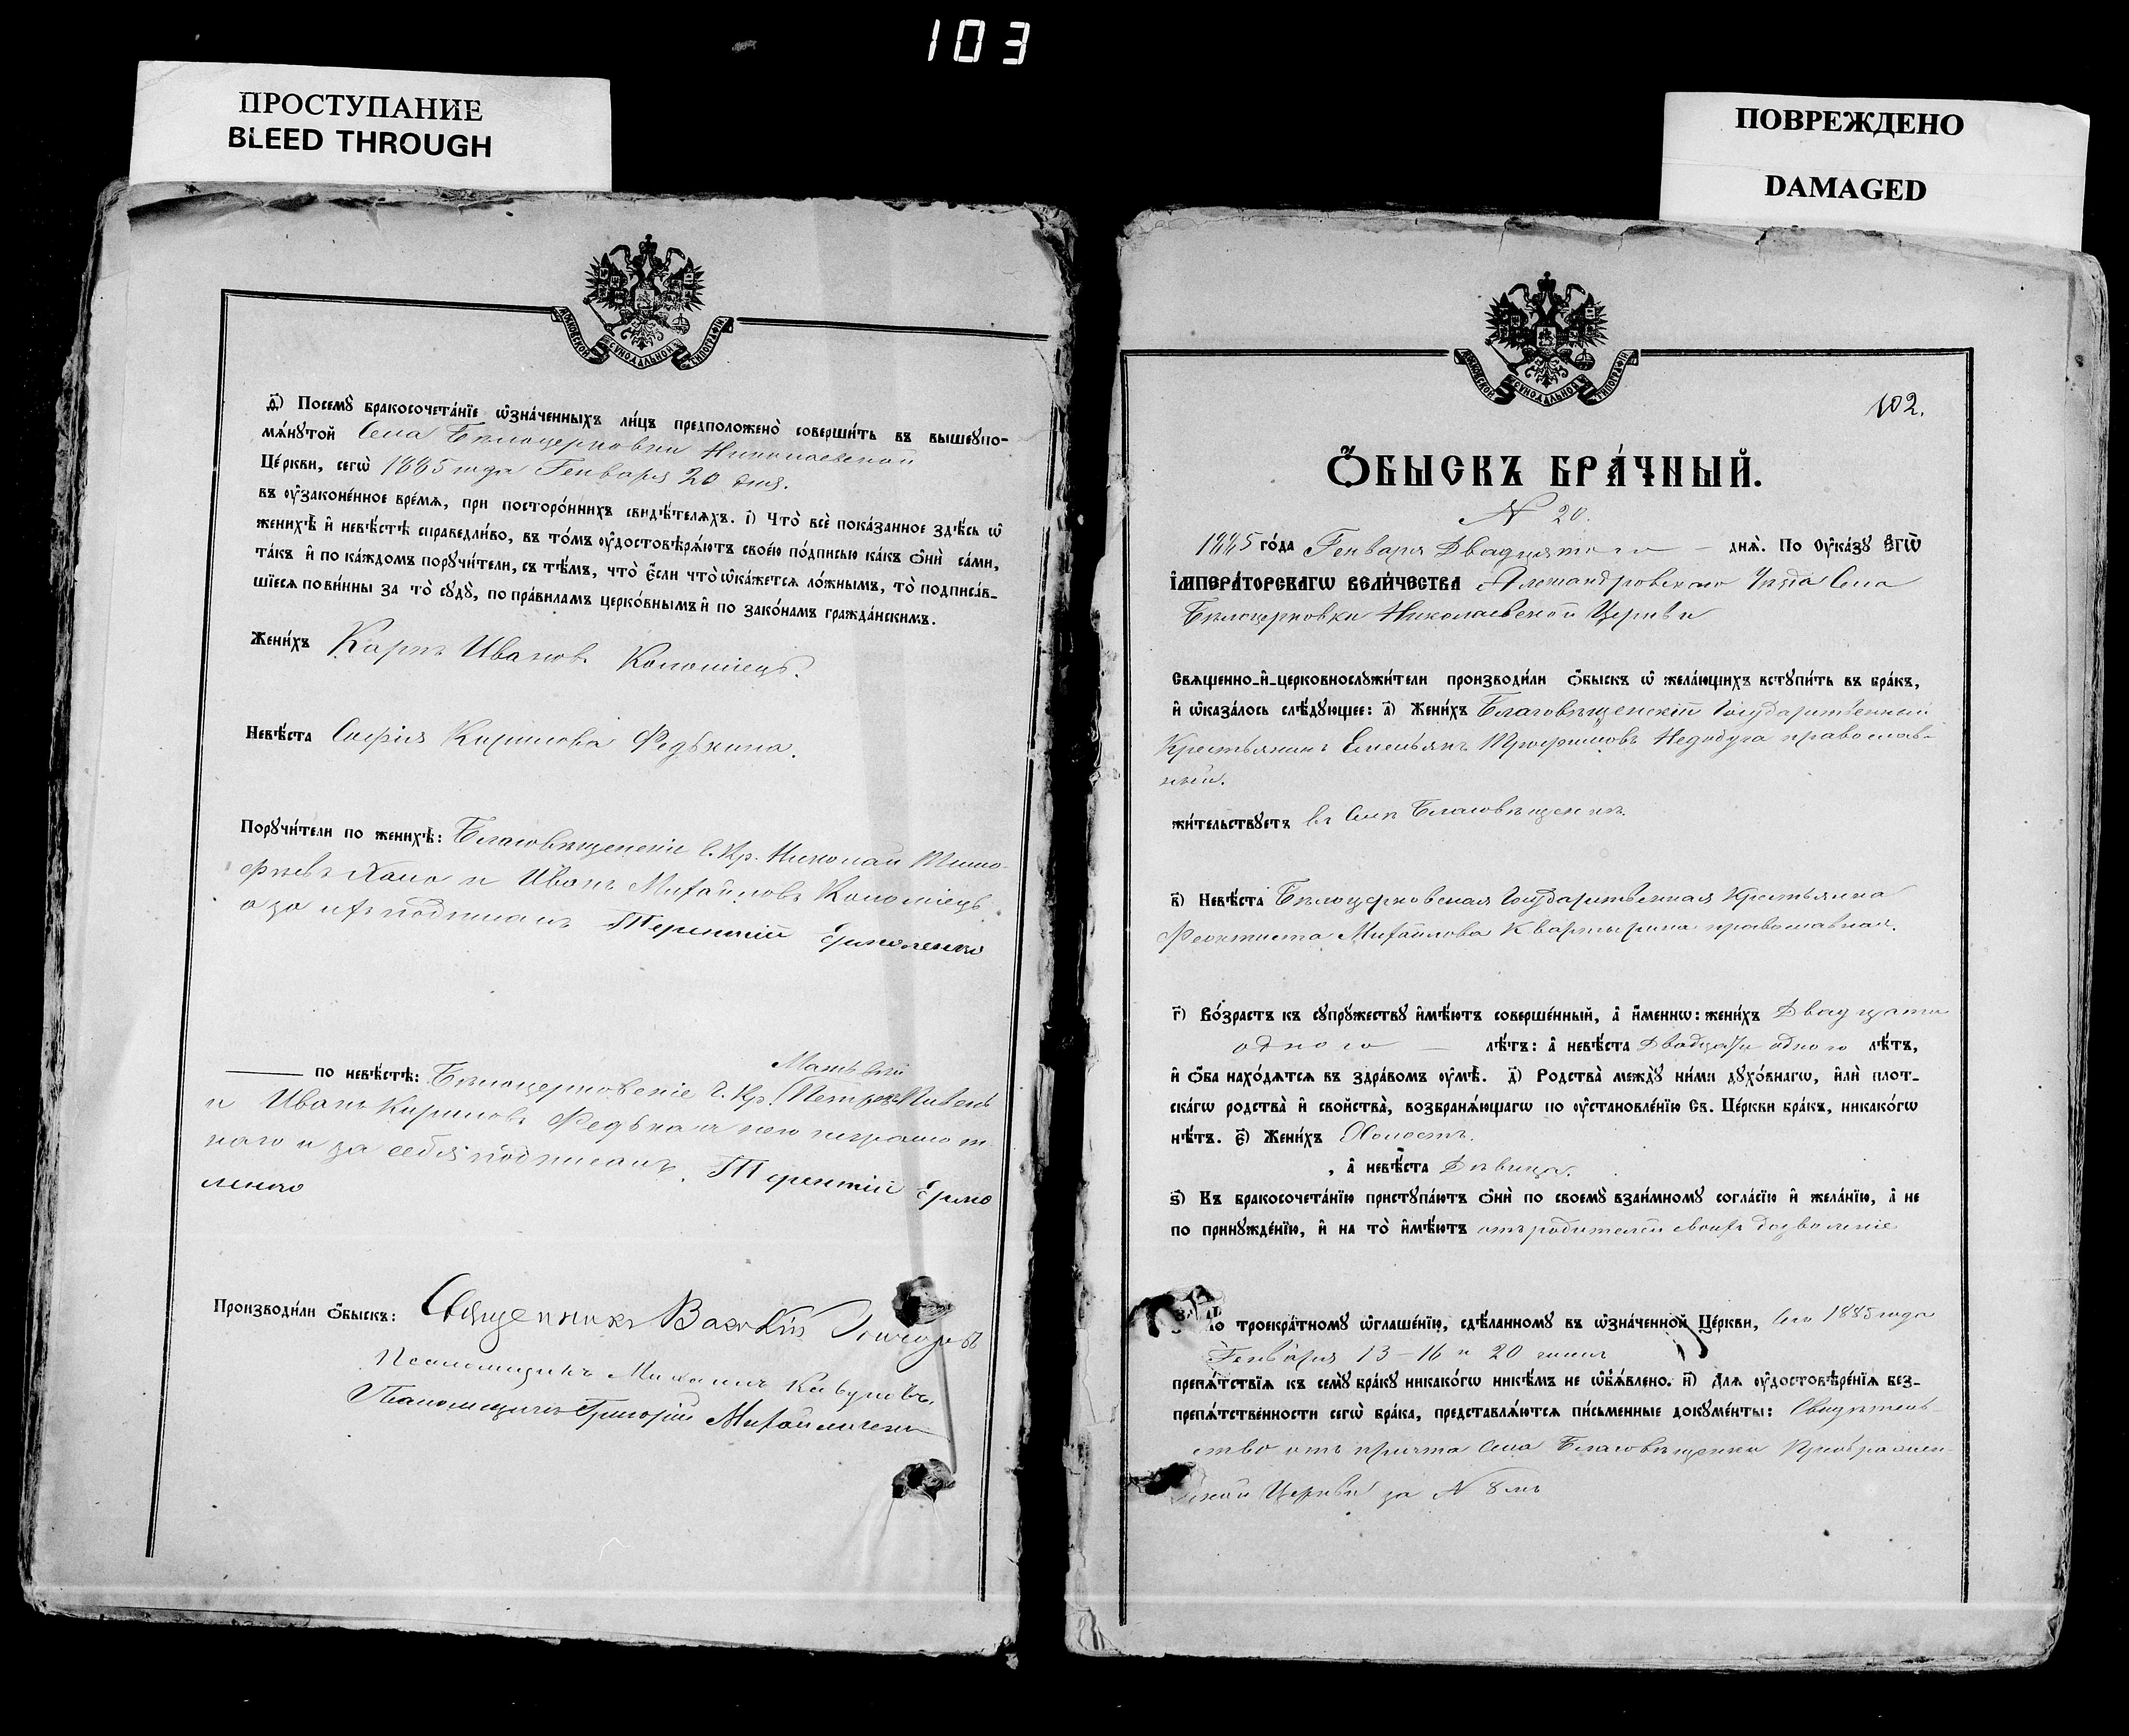 103
ПРОСТУПАНИЕ
BLEED THROUGH
ПОВРЕЖДЕНО
DAMAGED
МОСКОВСКОЙ СѴНОДАЛЬНОЙ ТИПОГРАФІИ
д҃і) Посемꙋ̀ бракосочета́нїе ѡ҆зна́ченныхъ ли́цъ предположено̀ соверши́ть въ вышеꙋпо-
мѧ́нꙋтой Села Бѣлоцерковки Николаевской
Це́ркви, сегѡ̀ 1885 года Генваря 20 дня.
въ ᲂу҆законе́нное вре́мѧ, при посторо́ннихъ свидѣ́телѧхъ. і҃) Что̀ всѐ пока́занное здѣ́сь ѡ҆
женихѣ̀ и҆ невѣ́стѣ справедли́во, въ то́мъ ᲂу҆достовѣрѧ́ютъ свое́ю по́дписью ка́къ ѻ҆нѝ са́ми,
та́къ и҆ по ка́ждомъ порꙋчи́тели, съ тѣ́мъ, что̀ є҆́сли что̀ ѡ҆ка́жетсѧ ло́жнымъ, то̀ подписа́в-
шїесѧ пови́нны за то̀ сꙋдꙋ̀, по пра́виламъ церко́внымъ и҆ по зако́намъ гражда́нскимъ.
Жени́хъ Карпъ Ивановъ Коломіецъ.
Невѣ́ста Софія Кирилова Федькина.
Порꙋчи́тели по женихѣ̀: Благовѣщенскіи Г. Кр. Николай Тимо-
фѣевъ Хало и Иванъ Михайловъ Коломіецъ
а за ихъ подписалъ Терентій Ермоленко
Матьвѣй
по невѣ́стѣ: Бѣлоцерковскіе Г. Кр. Петръ Пивень
и Иванъ Кириловъ Федька а него неграмот
наго и за себя подписалъ. Терентій Ермо
ленко
Производи́ли ѻ҆́быскъ: Священникъ Василій
Псаломщикъ Михаилъ
Псаломщикъ Григорій Михайличенко
МОСКОВСКОЙ СѴНОДАЛЬНОЙ ТИПОГРАФІИ
102.
Ѻ҆́БЫСКЪ БРА́ЧНЫЙ.
N 20.
1885 го́да Генваря Двадцятого — днѧ̀. По Оу҆ка́зꙋ Є҆гѡ̀
І҆мпера́торскагѡ Вели́чества Александровскаго Уѣзда Села
Бѣлоцерковки Николаевской Церкви
Свѧщенно-и҆-церковнослꙋжи́тели производи́ли ѻ҆́быскъ ѡ҆ жела́ющихъ встꙋпи́ть въ бра́къ,
и҆ ѡ҆каза́лось слѣ́дꙋющее: а҃) Жени́хъ Благовѣщенскій Государственный
Крестьянинъ Емельянъ Трофимовъ Недодуга православ-
ный.
жи́тельствꙋетъ въ Селѣ Благовѣщенкѣ.
в҃) Невѣ́ста Бѣлоцерковская Государственная Крестьянка
Феоктиста Михайлова Квартырина православная.
г҃) Во́зрастъ къ сꙋпрꙋжествꙋ и҆мѣ́ютъ соверше́нный, а҆ и҆́меннѡ: жени́хъ Двадцати
одного — лѣ́тъ: а҆ невѣ́ста Двадцати одного лѣ́тъ,
и҆ ѻ҆́ба нахо́дѧтсѧ въ здра́вомъ ᲂу҆мѣ̀. д҃) Родства̀ междꙋ̀ ни́ми дꙋхо́внагѡ, и҆лѝ плот-
ска́гѡ родства̀ и҆ свойства̀, возбранѧ́ющагѡ по ᲂу҆становле́нїю Св. Це́ркви бра́къ, никако́гѡ
нѣ́тъ. є҃) Жени́хъ Холостъ.
, а҆ невѣ́ста Дѣвица.
ѕ҃) Къ бракосочета́нїю пристꙋпа́ютъ ѻ҆нѝ по своемꙋ̀ взаи́мномꙋ согла́сїю и҆ жела́нїю, а҆ не
по принꙋжде́нїю, и҆ на то̀ и҆мѣ́ютъ отъ родителей своихъ дозволеніе
По троекра́тномꙋ ѡ҆глаше́нїю, сдѣ́ланномꙋ въ ѡ҆зна́ченной Це́ркви, Сего 1885 года
Генваря 13-16 и 20 чиселъ
препѧ́тствїѧ къ семꙋ̀ бра́кꙋ никако́гѡ никѣ́мъ не ѡ҆б̾ѧ́влено. и҃) Длѧ ᲂу҆достовѣре́нїѧ без-
препѧ́тственности сегѡ̀ бра́ка, представлѧ́ютсѧ пи́сьменные докꙋме́нты: Свидѣтель-
ство отъ причта Села Благовѣщенки Преображен-
ской Церкви за N 8мъ